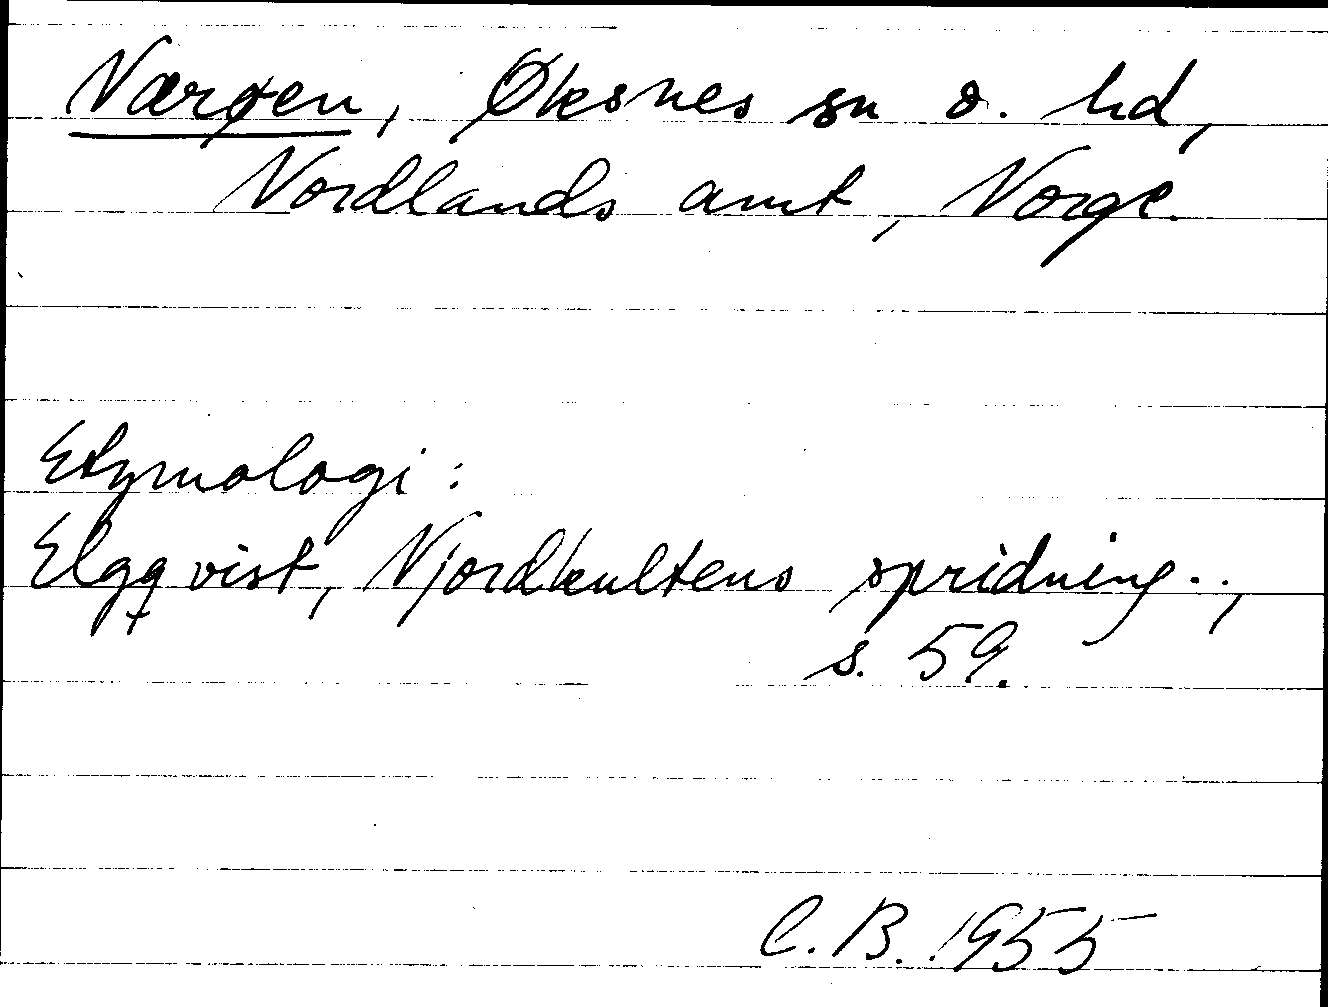 Nærøen, Øksnes sn o. hd,
Nordlands amt, Norge.
Etymologi:
Elgqvist, Njordkultens spridning..,
s. 59.
C.B. 1955